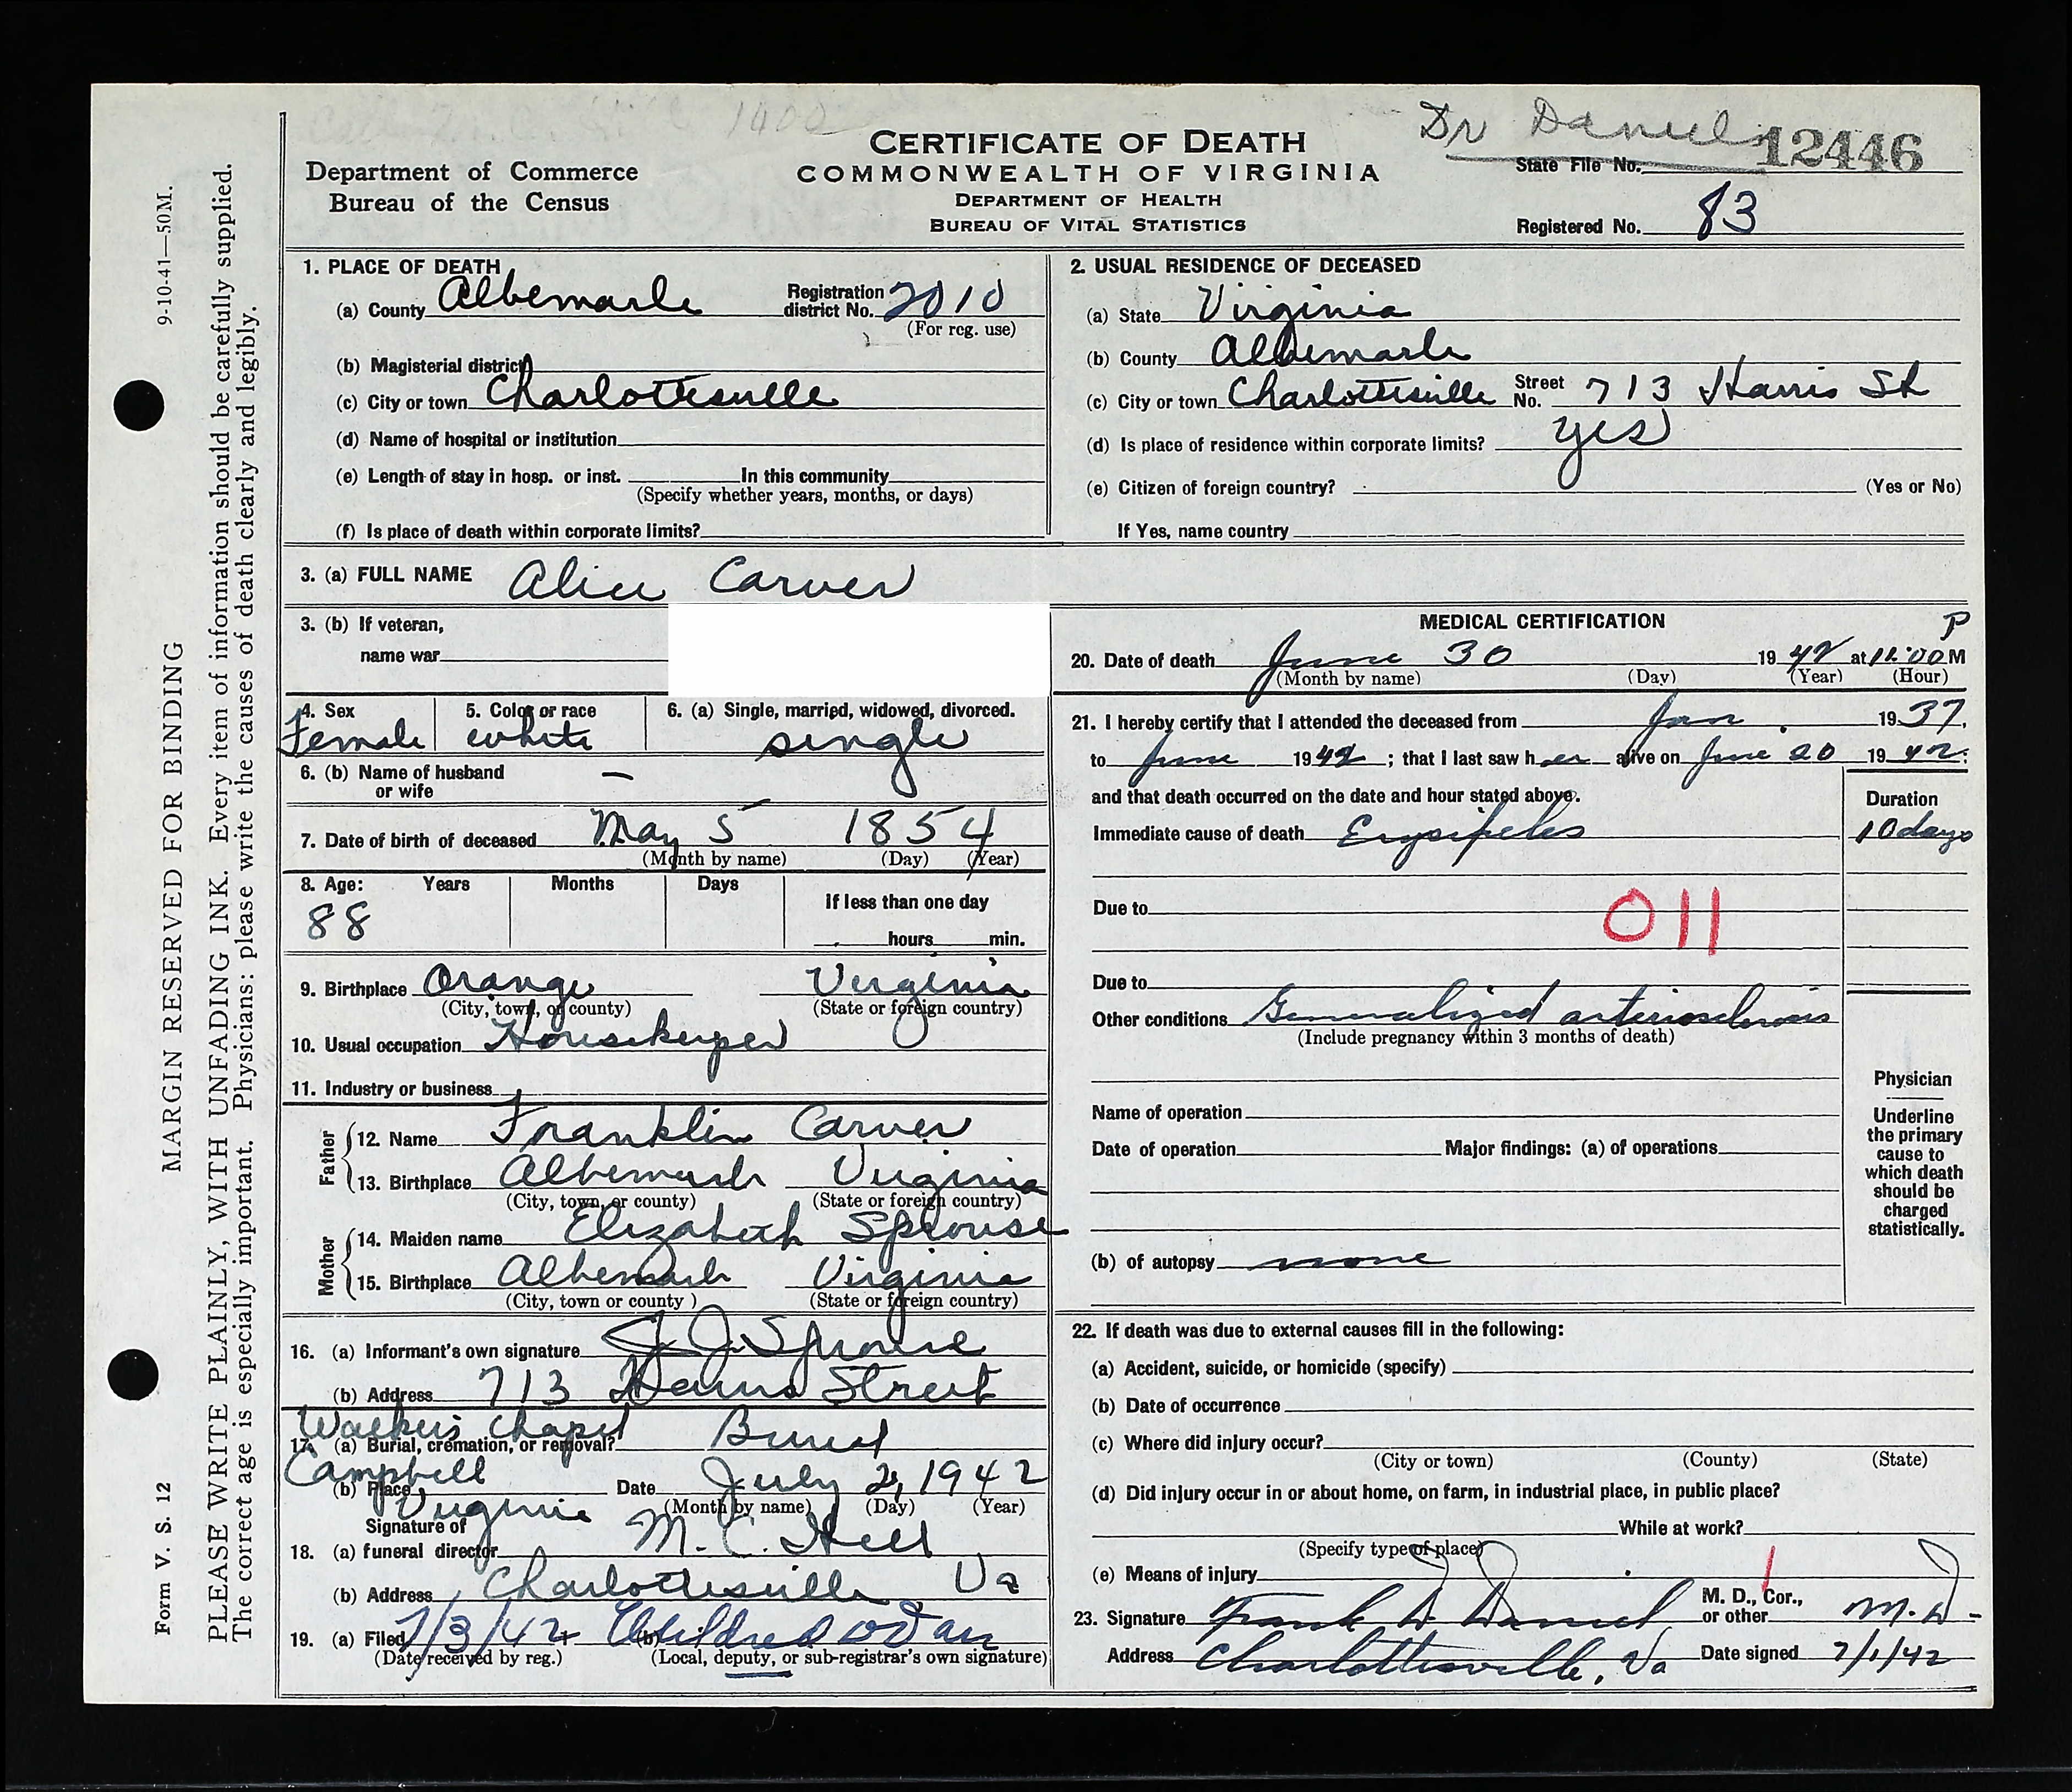 Dr Daniel
CERTIFICATE OF DEATH
COMMONWEALTH OF VIRGINIA
DEPARTMENT OF HEALTH
BUREAU OF VITAL STATISTICS
Department of Commerce
Bureau of the Census
State File No. 12446
Registered No. 83
9-10-41—50M.
MARGIN RESERVED FOR BINDING
Form V. S. 12
PLEASE WRITE PLAINLY, WITH UNFADING INK. Every item of information should be carefully supplied.
The correct age is especially important. Physicians: please write the causes of death clearly and legibly.
1. PLACE OF DEATH
(a) County Albemarle Registration district No. 2010
(For reg. use)
(b) Magisterial district
(c) City or town Charlottesville
(d) Name of hospital or institution
(e) Length of stay in hosp. or inst. In this community
(Specify whether years, months, or days)
(f) Is place of death within corporate limits?
2. USUAL RESIDENCE OF DECEASED
(a) State Virginia
(b) County Albemarle
(c) City or town Charlottesville Street No. 713 Harris St
(d) Is place of residence within corporate limits? yes
(e) Citizen of foreign country? (Yes or No)
If Yes, name country
3. (a) FULL NAME Alice Carver
3. (b) If veteran,
name war
4. Sex Female
5. Color or race white
6. (a) Single, married, widowed, divorced. single
6. (b) Name of husband or wife —
7. Date of birth of deceased May 5 1854
(Month by name) (Day) (Year)
8. Age: Years Months Days
88
If less than one day
hours min.
9. Birthplace Orange Virginia
(City, town, or county) (State or foreign country)
10. Usual occupation Housekeeper
11. Industry or business
Father
12. Name Franklin Carver
13. Birthplace Albemarle Virginia
(City, town, or county) (State or foreign country)
Mother
14. Maiden name Elizabeth Sprouse
15. Birthplace Albemarle Virginia
(City, town or county) (State or foreign country)
16. (a) Informant's own signature J. J. Sprouse
(b) Address 713 Harris Street
Walkers Chapel
17. (a) Burial, cremation, or removal? Burial
Campbell
(b) Place Virginia Date July 2, 1942
(Month by name) (Day) (Year)
Signature of
18. (a) funeral director M. C. Hill
(b) Address Charlottesville Va
19. (a) Filed 7/3/42 (b) Mildred
(Date received by reg.) (Local, deputy, or sub-registrar's own signature)
MEDICAL CERTIFICATION
20. Date of death June 30 1942 at 12:00 P M
(Month by name) (Day) (Year) (Hour)
21. I hereby certify that I attended the deceased from Jan. 1937,
to June 1942; that I last saw her alive on June 20 1942;
and that death occurred on the date and hour stated above.
Duration
Immediate cause of death Erysipelas 10 days
Due to
011
Due to
Other conditions Generalized arteriosclerosis
(Include pregnancy within 3 months of death)
Name of operation
Date of operation Major findings: (a) of operations
(b) of autopsy none
Physician
Underline
the primary
cause to
which death
should be
charged
statistically.
22. If death was due to external causes fill in the following:
(a) Accident, suicide, or homicide (specify)
(b) Date of occurrence
(c) Where did injury occur?
(City or town) (County) (State)
(d) Did injury occur in or about home, on farm, in industrial place, in public place?
While at work?
(Specify type of place)
(e) Means of injury
23. Signature Frank D. Daniel M. D., Cor., or other M.D.
Address Charlottesville, Va Date signed 7/1/42